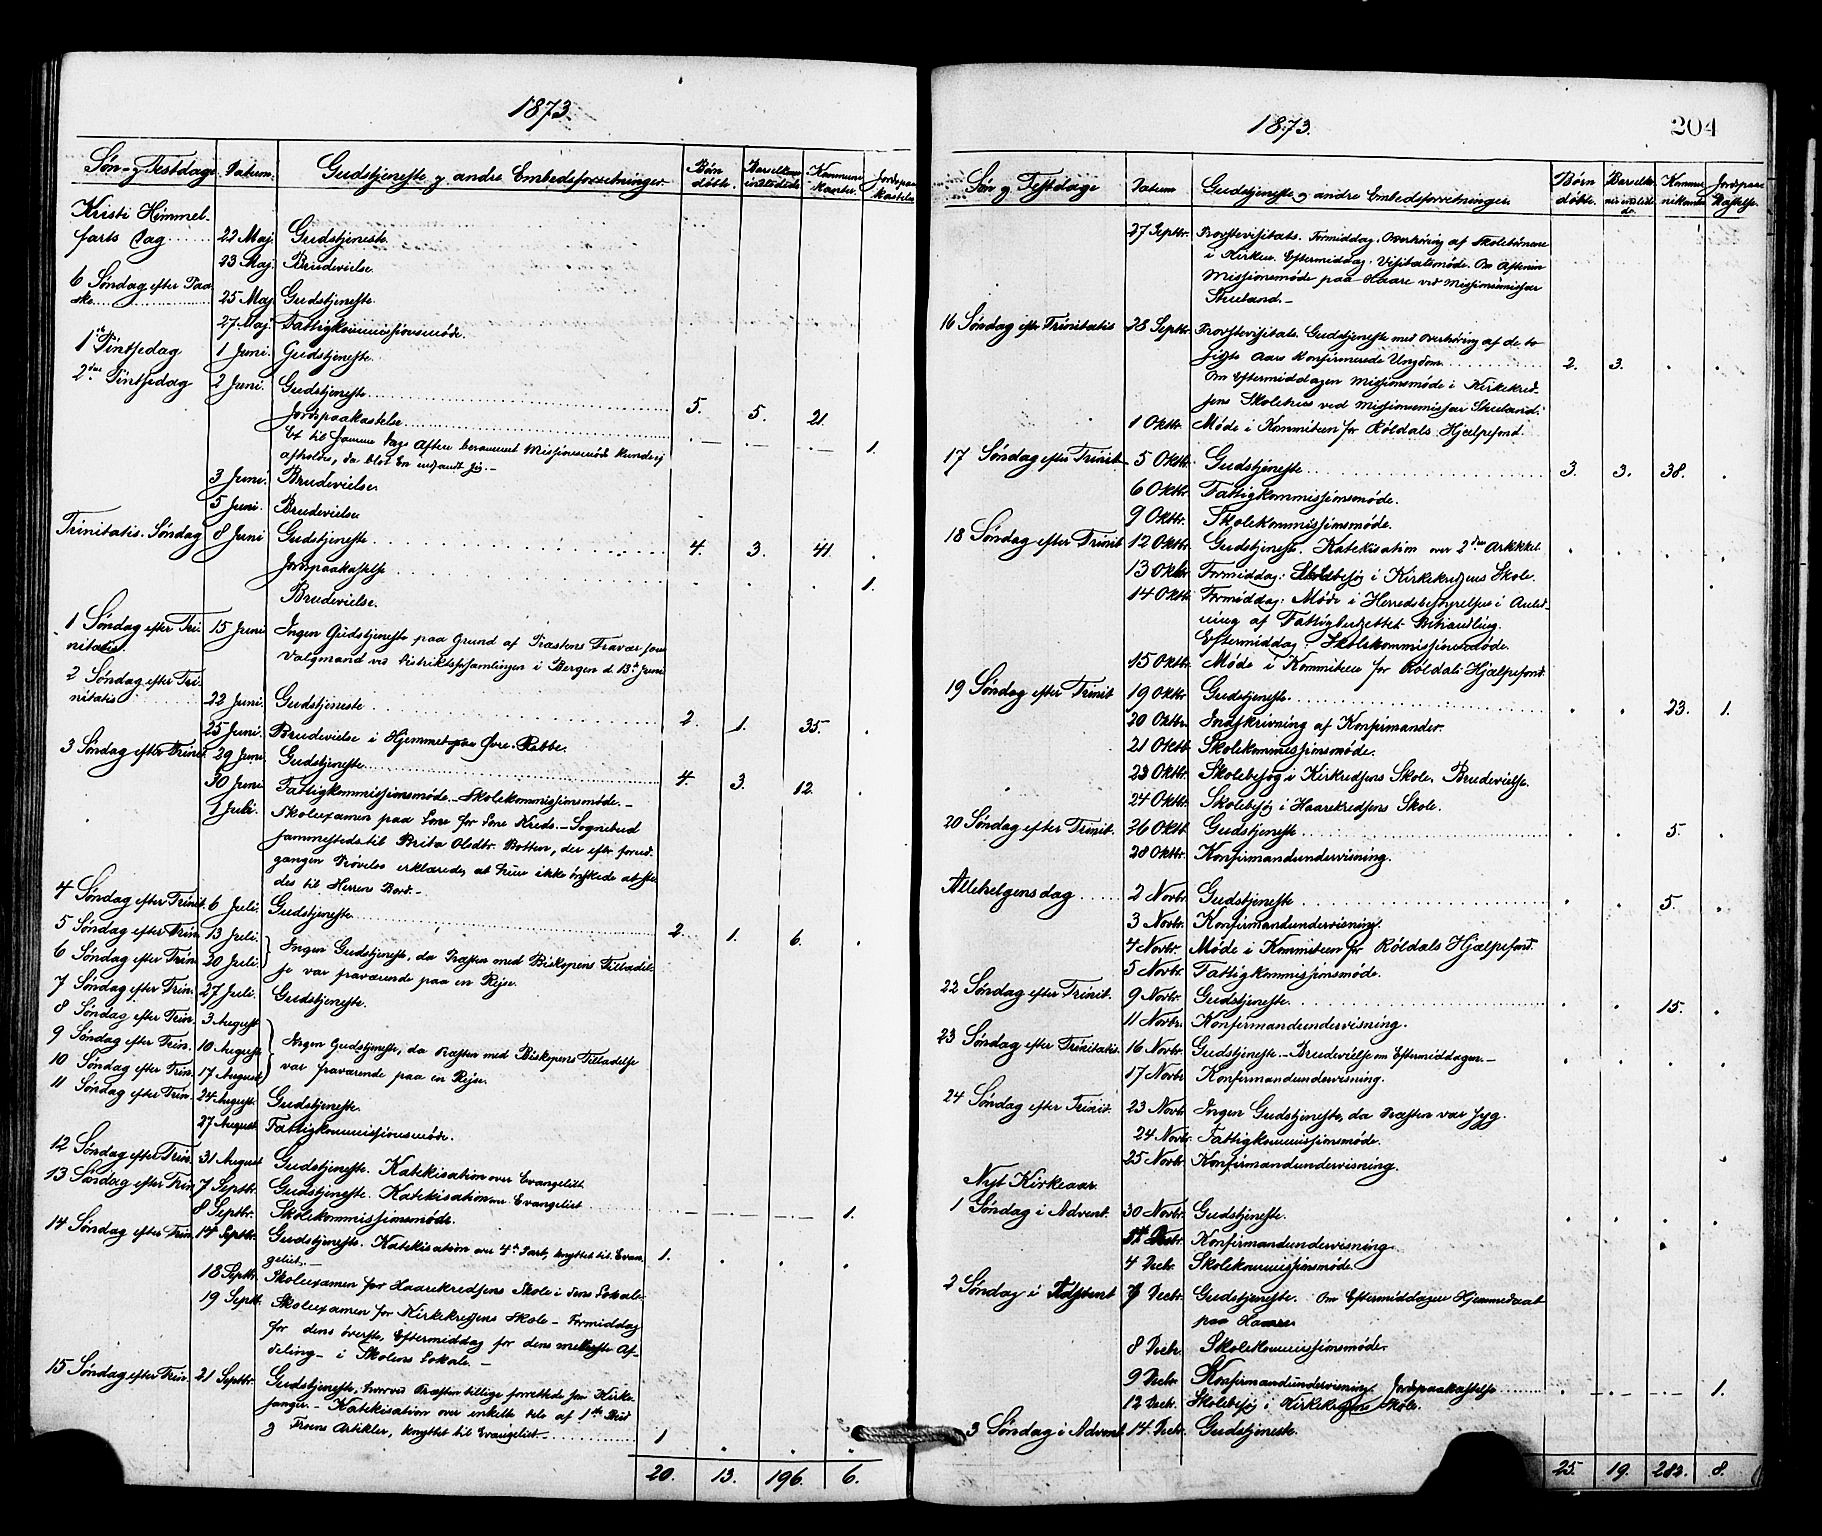 1873.
Søn- og Festdage Datum. Gudstjeneste og andre Embedsforretninger. Børn døbte. Barselkoner indledede Kommunikanter. Jordspaakastelse
Kristi Himmel-
farts Dag 22 Maj. Gudstjeneste.
23 Maj. Brudevielse.
6 Søndag efter Paa-
ske 25 Maj Gudstjeneste.
27 Maj. Fattigkommissionsmøde.
1ste Pintsedag 1 Juni. Gudstjeneste.
2den Pintsedag 2 Juni. Gudstjeneste 5. 5. 21.
Jordspaakastelse 1.
Et til samme Dags Aften berammet Missionsmøde kunde ej
afholdes, da blot En indfandt sig.
3 Juni. Brudevielse.
5 Juni. Brudevielse.
Trinitatis. Søndag 8 Juni Gudstjeneste 4. 3. 41.
Jordspaakastelse 1.
Brudevielse.
1 Søndag efter Tri- 15 Juni Ingen Gudstjeneste paa Grund af Præstens Fravær som
nitatis. Valgmand ved Distriktsforsamlingen i Bergen d. 13de Juni
2 Søndag efter Tri-
nitatis 22 Juni. Gudstjeneste 2. 1. 35.
25 Juni. Brudevielse i Hjemmet paa Øvre-Rabbe.
3 Søndag efter Trinit. 29 Juni Gudstjeneste 4. 3. 12.
30 Juni Fattigkommissionsmøde. - Skolekommissionsmøde. -
1 Juli. Skoleexamen paa Lone for Lone Kreds. - Sognebud
sammesteds til Brita Olsdtr. Botten, der efter foreud-
gangen Prøvelse erklærede, at hun ikke ønskede at ste-
des til Herrens Bord. -
4 Søndag efter Trinit. 6 Juli. Gudstjeneste 2. 1. 6.
5 Søndag efter Trin. 13 Juli. Ingen Gudstjeneste, da Præsten med Biskopens Tilladel-
6 Søndag efter Trin. 20 Juli. se var fraværende paa en Rejse.
7 Søndag efter Trin. 27 Juli. Gudstjeneste.
8 Søndag efter Trin. 3 August
9 Søndag efter Trin. 10 August Ingen Gudstjeneste, da Præsten med Biskopens Tilladelse
10 Søndag efter Trin. 17 August var fraværende paa en Rejse.
11 Søndag efter Trin. 24 August. Gudstjeneste.
27 August. Fattigkommissionsmøde.
12 Søndag efter Trin. 31 August Gudstjeneste. Katekisation over Evangeliet.
13 Søndag efter Trin 7 Septbr. Gudstjeneste. Katekisation over Evangeliet
8 Septbr. Skolekommissionsmøde. 1.
14 Søndag efter Trin. 14 Septbr. Gudstjeneste. Katekisation over 4de Part, knyttet til Evan- 1.
geliet. -
18 Septbr. Skoleexamen for Haarekredsens Skole i dens Lokale
19 Septbr. Skoleexamen for Kirkekredsens Skole - Formiddag
for dens øverste, Eftermiddag for dens nederste Af-
deling - i Skolens Lokale. -
15 Søndag efter Trin. 21 Septbr. Gudstjeneste, hvorved Præsten tillige forrettede som Kirke-
sanger. - Katekisation over enkelte Dele af 1ste Bud
og Troens Artikler, knyttet til Evangeliet. 1
20. 13. 196. 6.
1873. 204
Søn og Festdage Datum Gudstjeneste og andre Embedsforretninger Børn døbte. Barselkoner indledede. Kommunikanter Jordspaakastelse.
27 Septbr. Provstevisitats. Formiddag. Overhøring af Skolebørnene
i Kirken. Eftermiddag. Visitatsmøde. Om Aftenen
Missionsmøde paa Haare ved Missionsemissær
Strueland. -
16 Søndag eftr Trinitatis 28 Septbr. Provstevisitats. Gudstjeneste med Overhøring af de to
sidste Aars Konfirmerede Ungdom 2. 3.
Om Eftermiddagen Missionsmøde i Kirkekred-
sens Skolehus ved Missionsemissær Strueland.
1 Oktbr. Møde i Kommiteen for Røldals Hjælpefond.
17 Søndag efter Trinit 5 Oktbr. Gudstjeneste 3. 3. 38.
6 Oktbr. Fattigkommissionsmøde.
9 Oktbr. Skolekommissionsmøde.
18 Søndag efter Trinit 12 Oktbr. Gudstjeneste. Katekisation over 2den Artikkel.
13 Oktbr. Formiddag: Skolebesøg i Kirkekredsens Skole.
14 Oktbr. Formiddag: Møde i Herredsbestyrelsen i Anled-
ning af Fattigbudgettets Behandling.
Eftermiddag: Skolekommissionsmøde.
15 Oktbr. Møde i Kommiteen for Røldals Hjælpefond.
19 Søndag efter Trinit 19 Oktbr. Gudstjeneste. 23. 1.
20 Oktbr. Indskrivning af Konfirmander.
21 Oktbr. Skolekommissionsmøde.
23 Oktbr. Skolebesøg i Kirkredsens Skole. Brudevielse.
24 Oktbr. Skolebesøg i Haarekredsens Skole.
20 Søndag efter Trinit. 26 Oktbr. Gudstjeneste 5.
28 Oktbr. Konfirmandundervisning.
Allehelgensdag 2 Novbr. Gudstjeneste 5.
3 Novbr. Konfirmandundervisning.
4 Novbr. Møde i Kommiteen for Røldals Hjælpefond.
5 Novbr. Fattigkommissionsmøde.
22 Søndag efter Trinit. 9 Novbr. Gudstjeneste. 15.
11 Novbr. Konfirmandundervisning.
23 Søndag efter Trinitatis. 16 Novbr. Gudstjeneste. - Brudevielse om Eftermiddagen. -
17 Novbr. Konfirmandundervisning.
24 Søndag efter Trinit. 23 Novbr. Ingen Gudstjeneste, da Præsten var syg.
24 Novbr. Fattigkommissionsmøde.
25 Novbr. Konfirmandundervisning.
Nyt Kirkeaar.
1 Søndag i Advent. 30 Novbr. Gudstjeneste.
Konfirmandundervisning
4 Decbr. Skolekommissionsmøde.
2 Søndag i Advent 7 Decbr. Gudstjeneste. Om Eftermiddagen Hjemmedaab
paa Haare.
8 Decbr. Skolekommissionsmøde.
9 Decbr. Konfirmandundervisning. Jordspaakastelse 1.
12 Decbr. Skolebesøg i Kirkekredsens Skole.
3 Søndag i Advent 14 Decbr. Gudstjeneste.
25. 19. 282. 8.